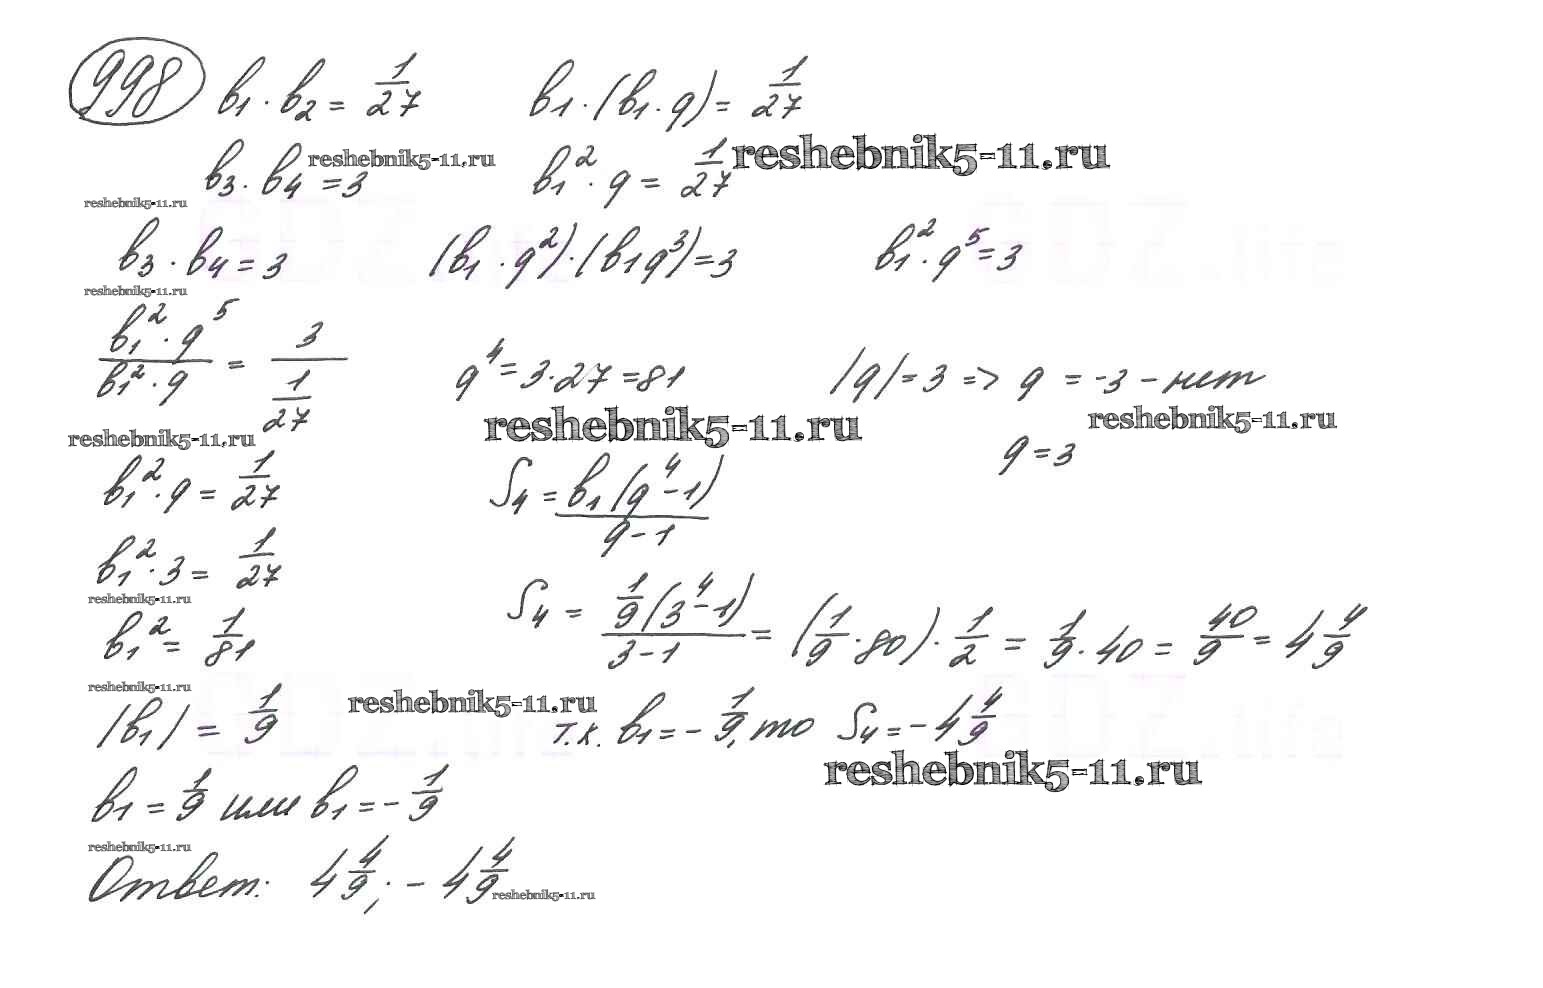 998 b₁ · b₂ = 1/27    b₁ · (b₁ · q) = 1/27
b₃ · b₄ = 3 reshebnik5-11.ru    b₁² · q = 1/27 reshebnik5-11.ru
reshebnik5-11.ru
b₃ · b₄ = 3    (b₁ · q²) · (b₁q³) = 3    b₁² · q⁵ = 3
reshebnik5-11.ru
(b₁² · q⁵)/(b₁² · q) = 3/(1/27)    q⁴ = 3 · 27 = 81    |q| = 3 => q = -3 - нет
reshebnik5-11.ru reshebnik5-11.ru reshebnik5-11.ru
q = 3
b₁² · q = 1/27    S₄ = b₁(q⁴ - 1)/(q - 1)
b₁² · 3 = 1/27
reshebnik5-11.ru
b₁² = 1/81    S₄ = (1/9(3⁴ - 1))/(3 - 1) = (1/9 · 80) · 1/2 = 1/9 · 40 = 40/9 = 4 4/9
reshebnik5-11.ru
|b₁| = 1/9 reshebnik5-11.ru    т.к. b₁ = - 1/9, то S₄ = - 4 4/9
reshebnik5-11.ru
b₁ = 1/9 или b₁ = - 1/9
reshebnik5-11.ru
Ответ: 4 4/9; - 4 4/9 reshebnik5-11.ru